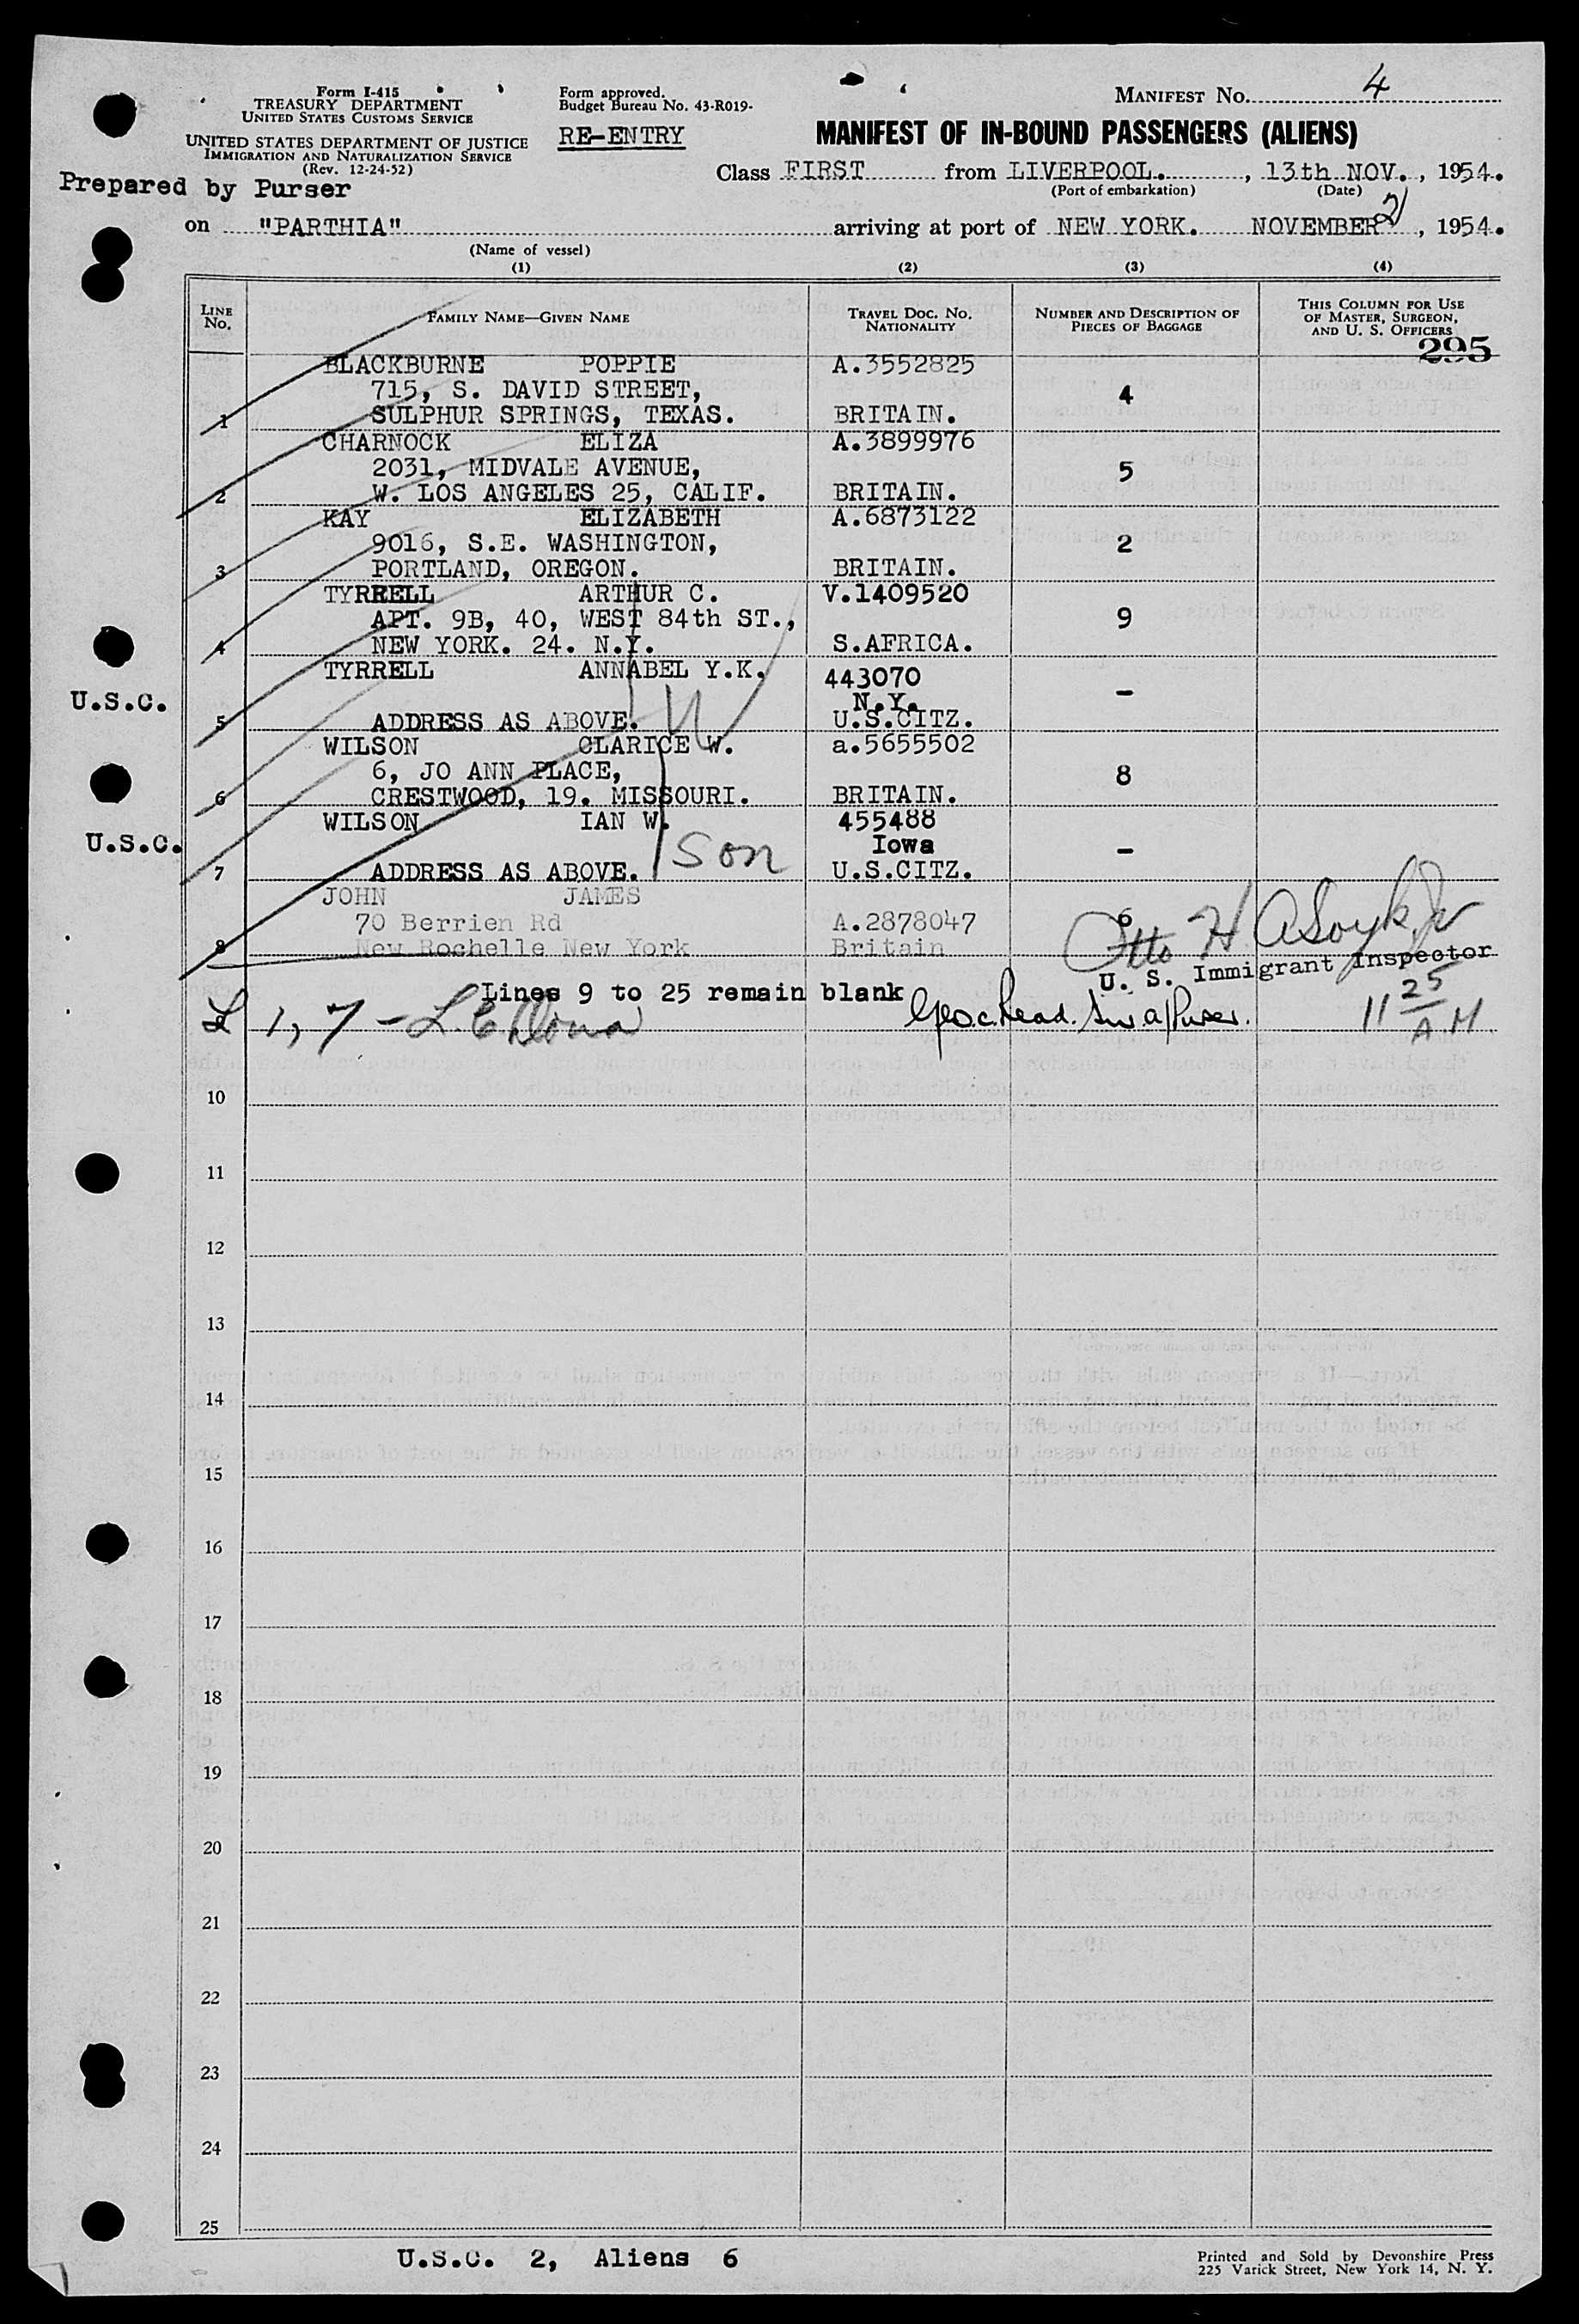 Form I-415
TREASURY DEPARTMENT
UNITED STATES CUSTOMS SERVICE
UNITED STATES DEPARTMENT OF JUSTICE
IMMIGRATION AND NATURALIZATION SERVICE
(Rev. 12-24-52)
Prepared by Purser
Form approved.
Budget Bureau No. 43-R019-
RE-ENTRY
MANIFEST NO. 4
MANIFEST OF IN-BOUND PASSENGERS (ALIENS)
Class FIRST from LIVERPOOL. , 13th NOV. , 1954.
(Port of embarkation) (Date)
on "PARTHIA" arriving at port of NEW YORK. NOVEMBER 21 , 1954.
(Name of vessel)
(1) (2) (3) (4)
LINE NO. FAMILY NAME—GIVEN NAME TRAVEL DOC. NO. NATIONALITY NUMBER AND DESCRIPTION OF PIECES OF BAGGAGE THIS COLUMN FOR USE OF MASTER, SURGEON, AND U. S. OFFICERS
295
BLACKBURNE POPPIE A.3552825
715, S. DAVID STREET, 4
1 SULPHUR SPRINGS, TEXAS. BRITAIN.
CHARNOCK ELIZA A.3899976
2031, MIDVALE AVENUE, 5
2 W. LOS ANGELES 25, CALIF. BRITAIN.
KAY ELIZABETH A.6873122
9016, S.E. WASHINGTON, 2
3 PORTLAND, OREGON. BRITAIN.
TYRRELL ARTHUR C. V.1409520
APT. 9B, 40, WEST 84th ST., 9
4 NEW YORK. 24. N.Y. S.AFRICA.
TYRRELL ANNABEL Y.K. 443070
U.S.C. N.Y. –
5 ADDRESS AS ABOVE. W U.S.CITZ.
WILSON CLARICE W. a.5655502
6, JO ANN PLACE, 8
6 CRESTWOOD, 19. MISSOURI. BRITAIN.
WILSON IAN W. 455488
U.S.C. Son Iowa –
7 ADDRESS AS ABOVE. U.S.CITZ.
JOHN JAMES
70 Berrien Rd A.2878047 6
8 New Rochelle New York Britain
Otto H
U. S. Immigrant Inspector
Lines 9 to 25 remain blank
1, 7 –
Geo. C. Read.
11 25 AM
10
11
12
13
14
15
16
17
18
19
20
21
22
23
24
25
U.S.C. 2, Aliens 6
Printed and Sold by Devonshire Press
225 Varick Street, New York 14, N. Y.